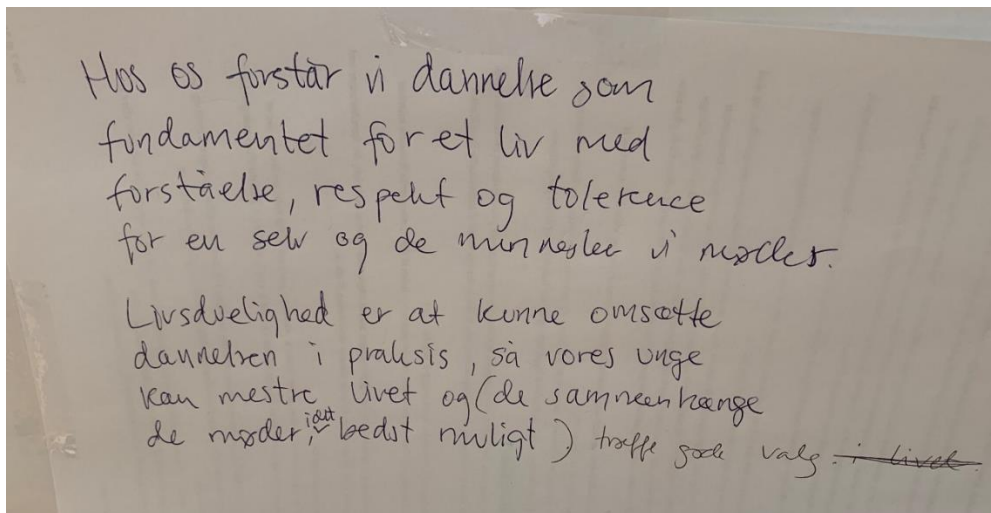 Hos os forstår vi dannelse som
fundamentet for et liv med
forståelse, respekt og tolerence
for en selv og de mennesker vi møder.
Livsduelighed er at kunne omsætte
dannelsen i praksis, så vores unge
kan mestre livet og (de sammenhænge
de møder, i det bedst muligt) træffe gode valg. i livet